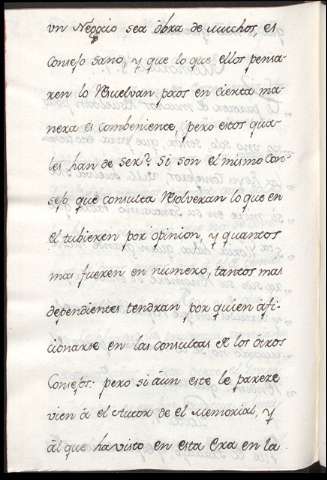 un Negocio sea obra de muchos, es
Consejo sano, y que lo que ellos pensa-
ren lo Rsuelvan pocos en cierta ma-
nera es combeniente, pero estos qua-
les han de ser? Si son el mismo Con-
sejo, que consulta Rolveran lo que en
el tubieren por opinion, y quantos
mas fueren en numero, tantos mas
dependientes tendran por quien afi-
cionarse en las consultas de los otros
Consejos: pero si aun este le parexe
vien à el Autor de el Memorial, y
àl que ha visto en esta Era en la